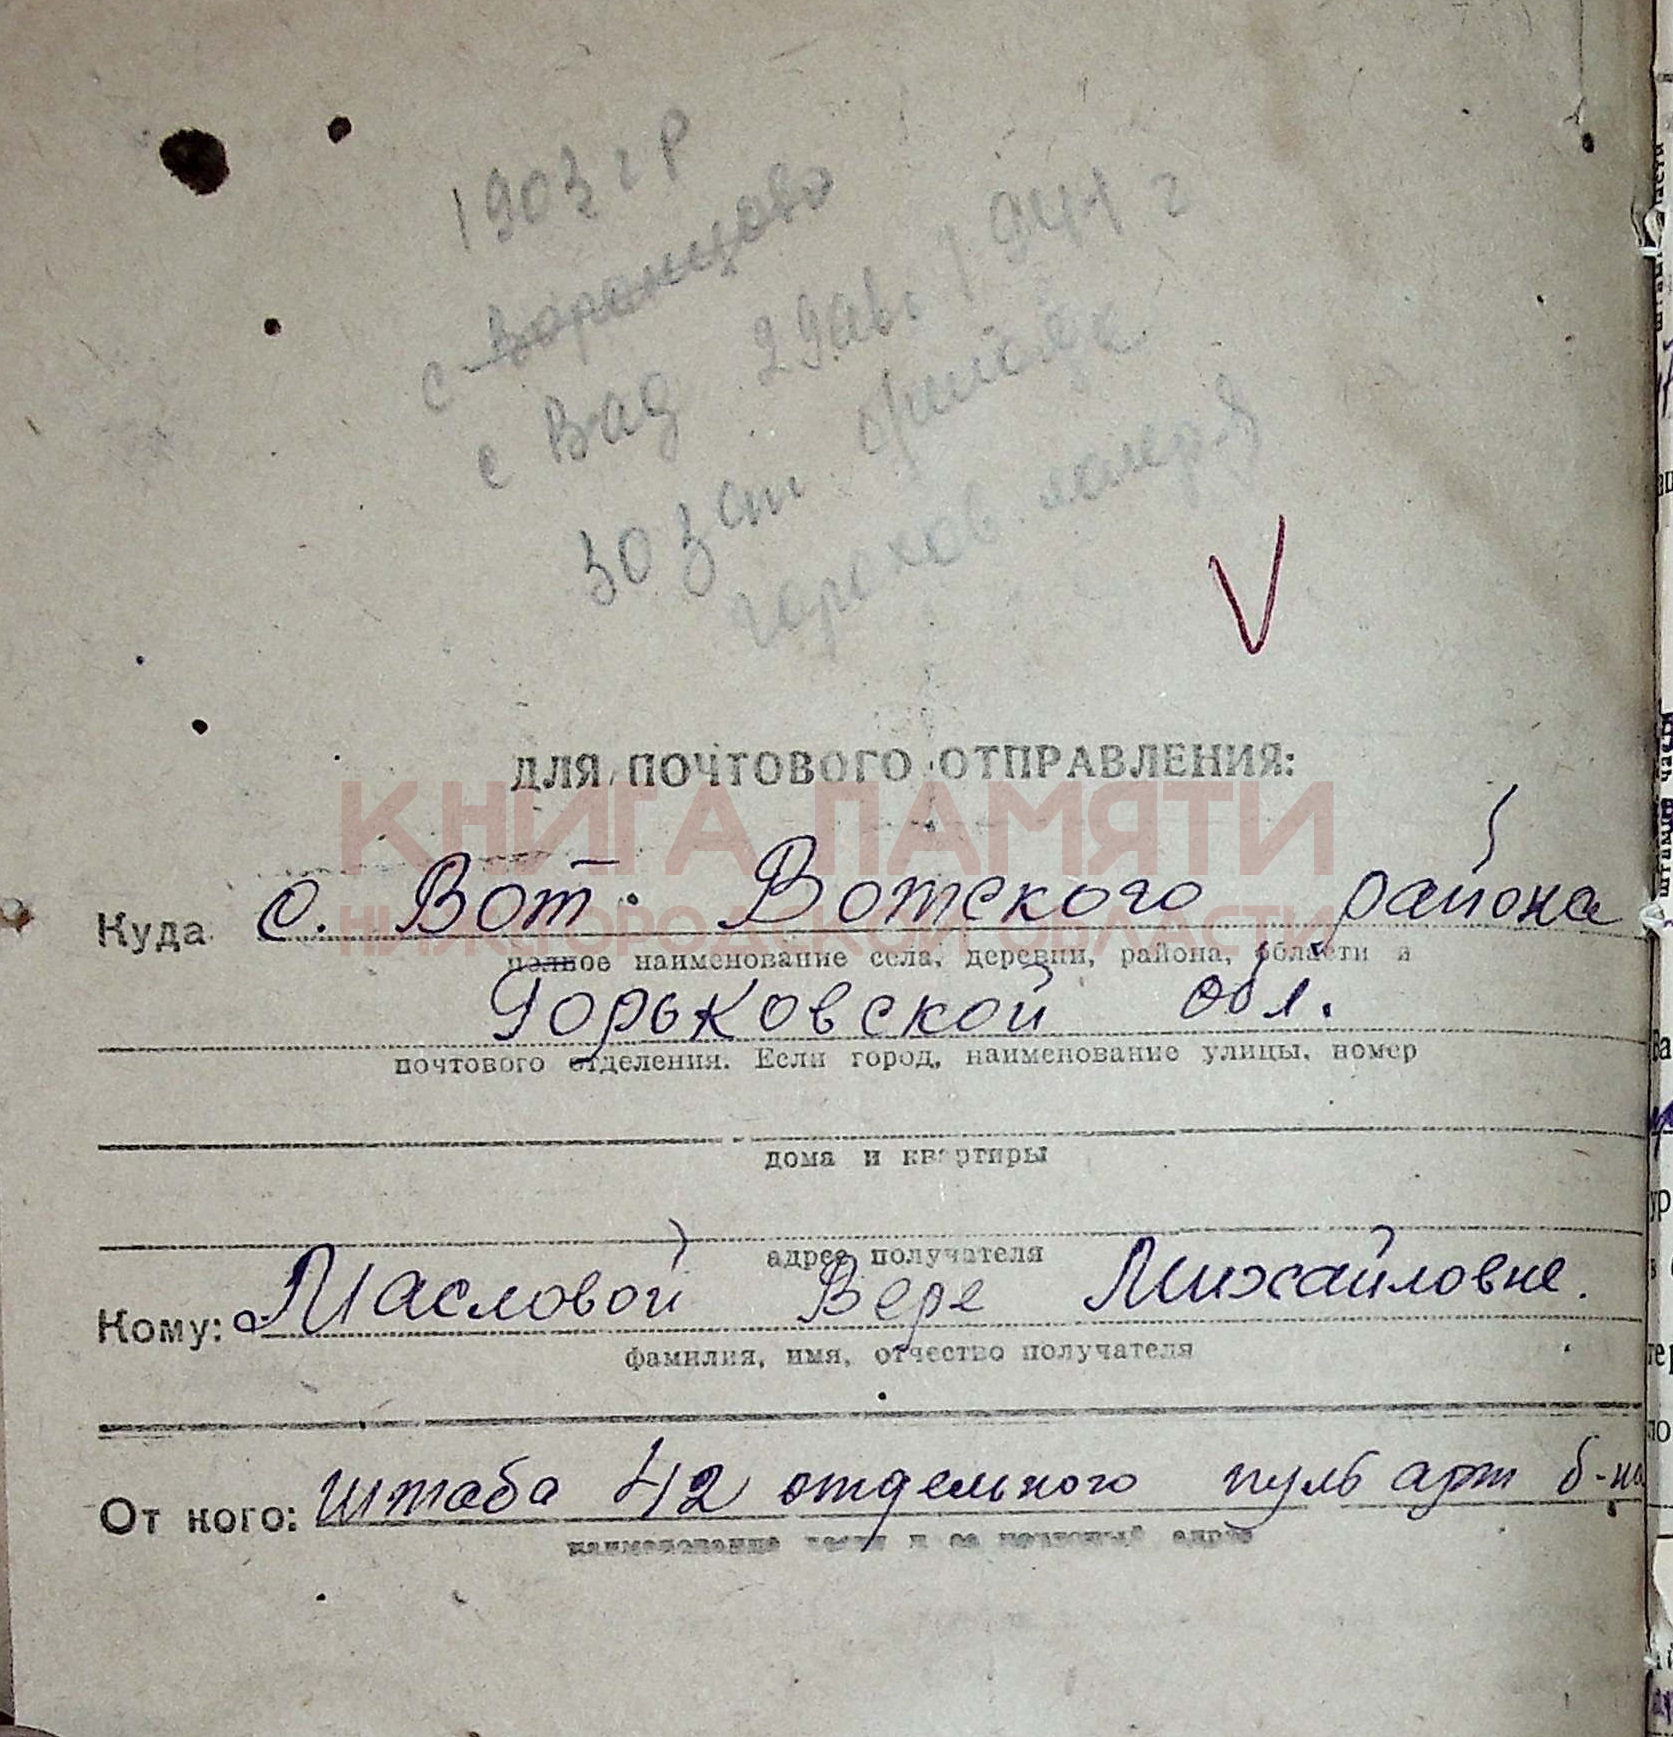 1903 г р
с Воронцово
с Вад 29 авг 1941 г
303 сп
ДЛЯ ПОЧТОВОГО ОТПРАВЛЕНИЯ:
КНИГА ПАМЯТИ
Куда с. Вот. Вотского района
НИЖЕГОРОДСКОЙ ОБЛАСТИ
полное наименование села, деревни, района, области и
Горьковской обл.
почтового отделения. Если город, наименование улицы, номер
дома и квартиры
адрес получателя
Кому: Масловой Вере Михайловне.
фамилия, имя, отчество получателя
От кого: штаба 42 отдельного пуль арт б-на
наименование части и ее почтовый адрес